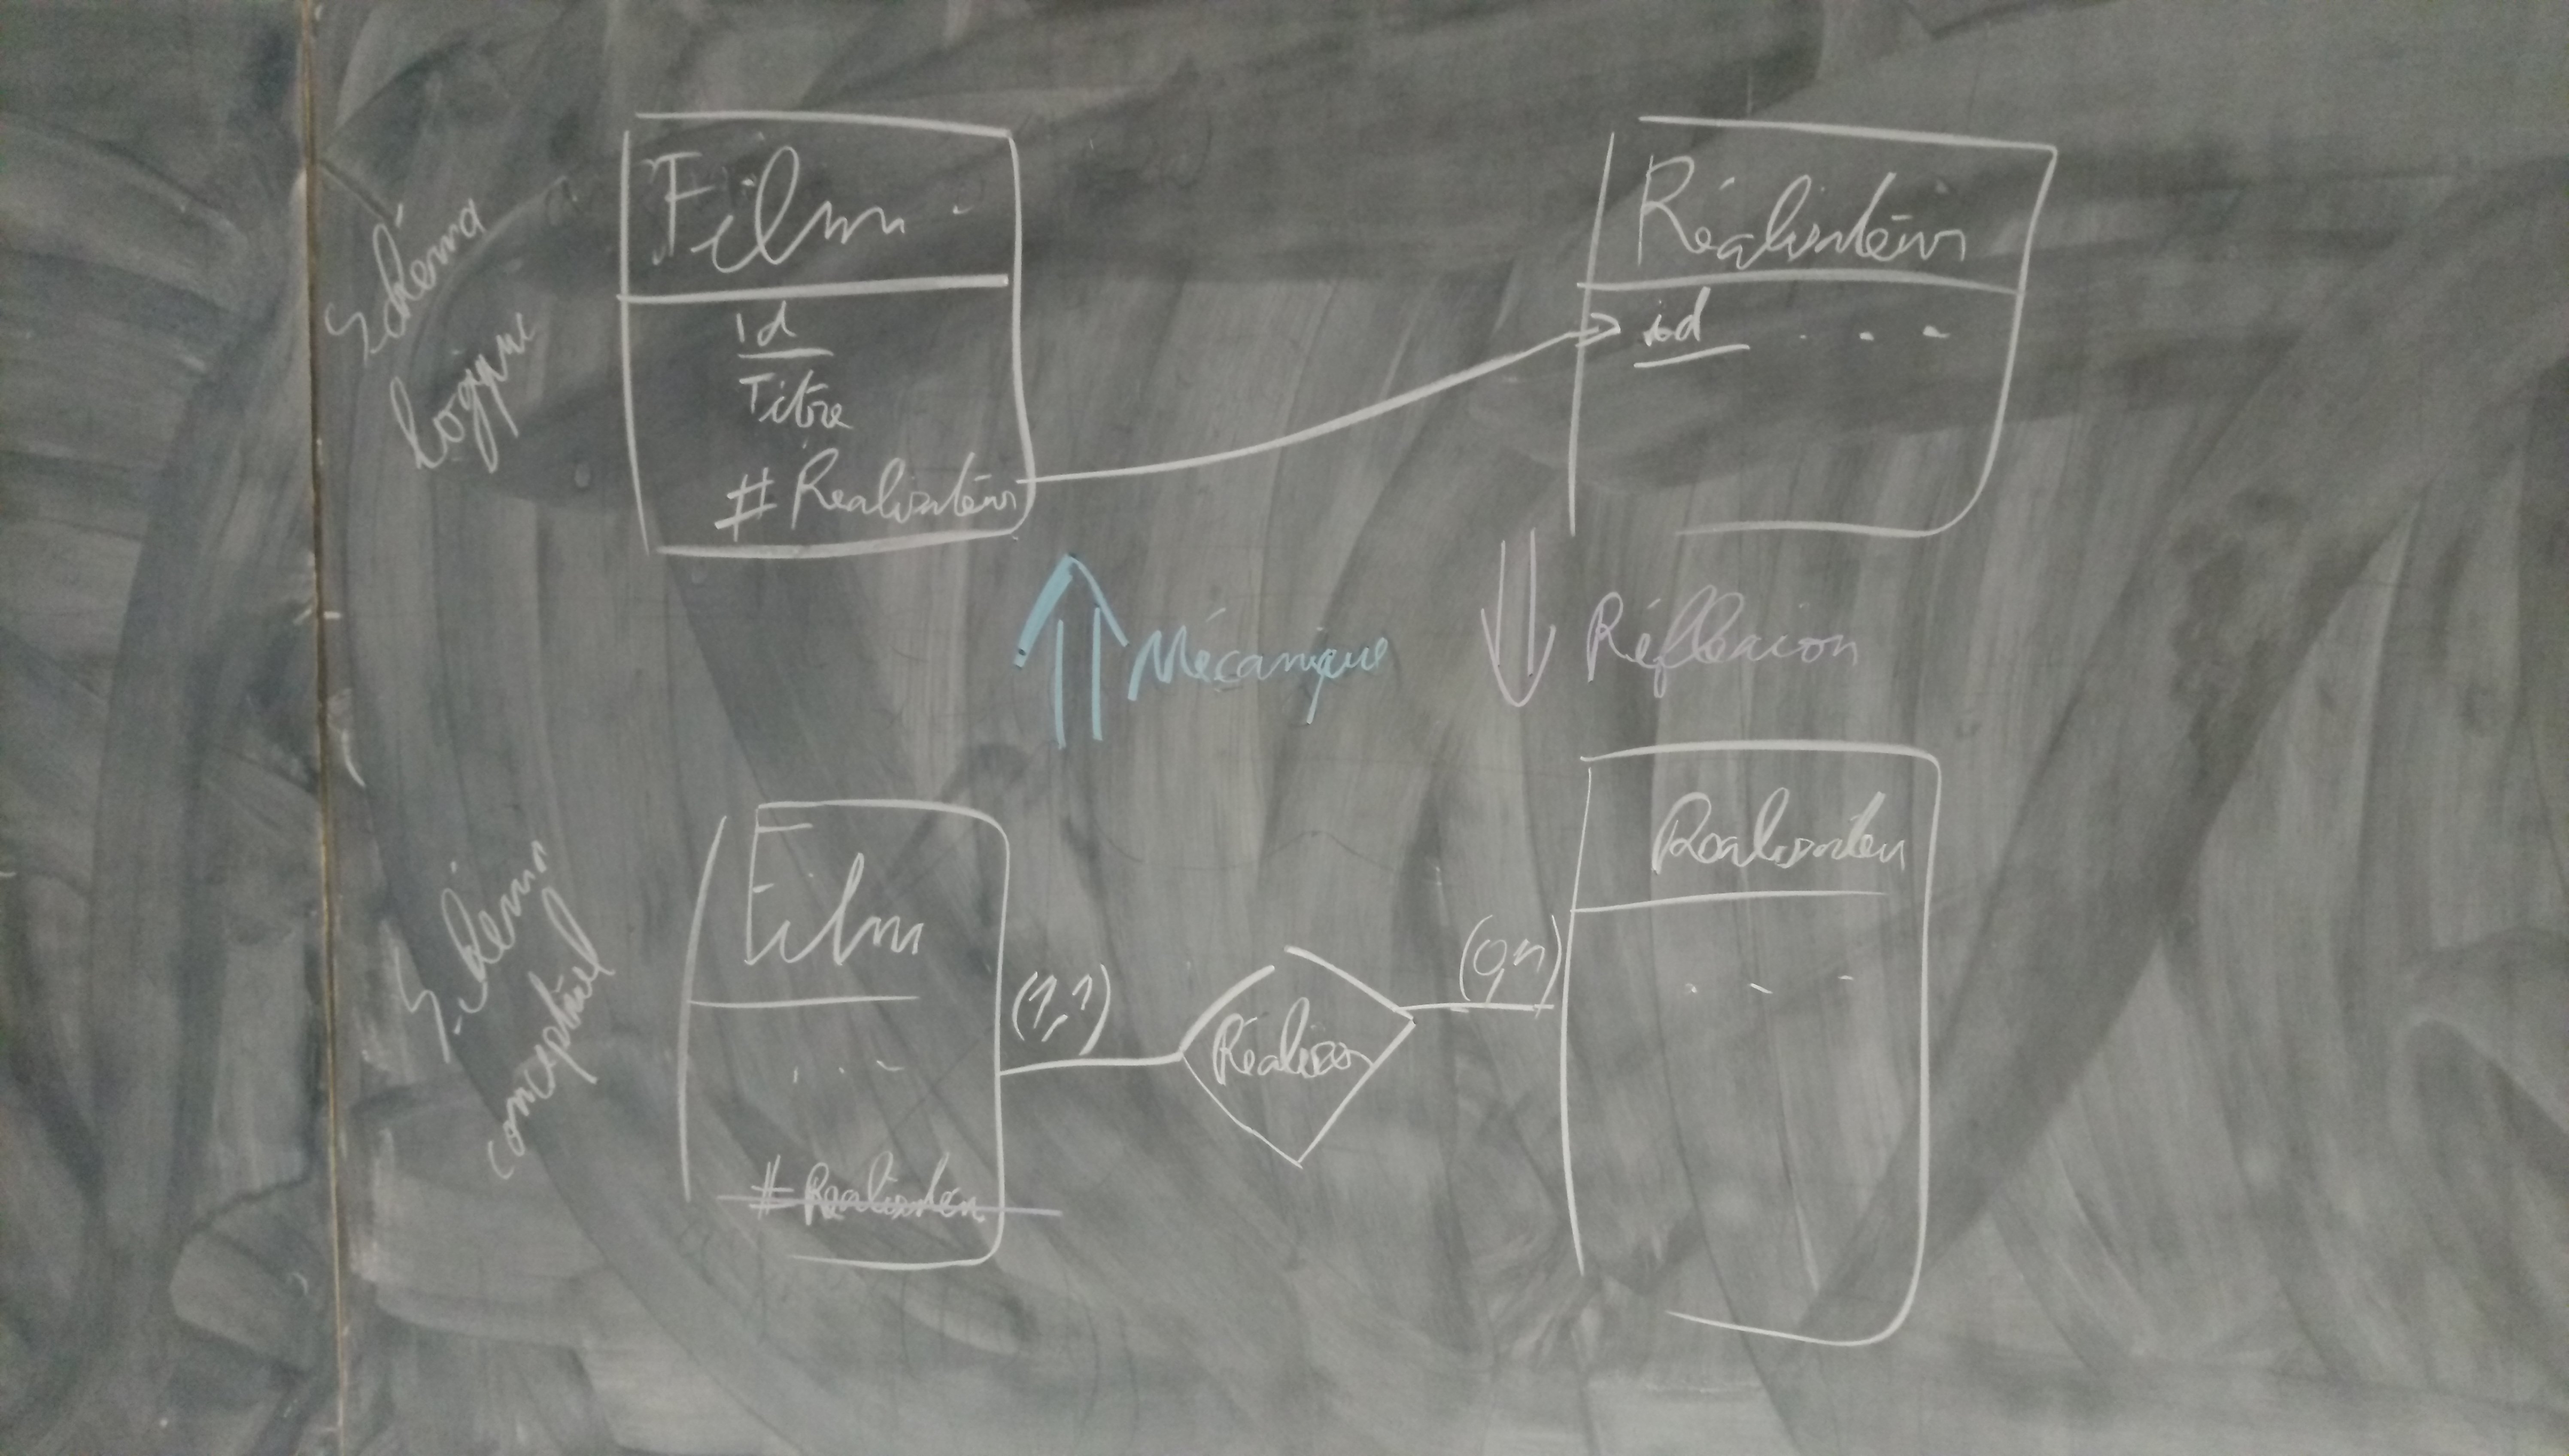 Schéma
logique
Film
id
Titre
# Realisateur
Réalisateur
id . . .
Mécanique
Réflexion
Schéma
conceptuel
Film
. . .
# Realisateur
(1,1)
Réaliser
(0,n)
Realisateur
. . .